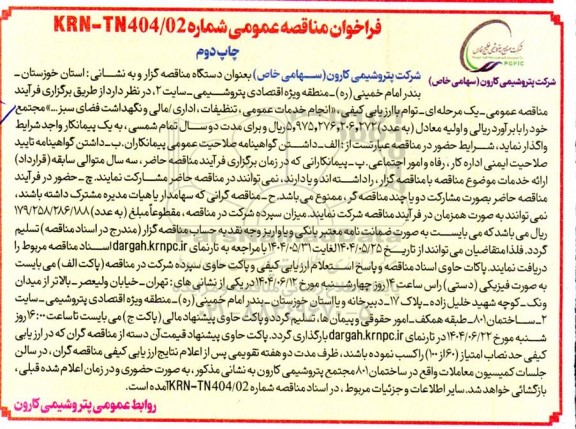 فراخوان مناقصه عمومی شماره KRN-TN404/02
چاپ دوم
شرکت صنایع پتروشیمی خلیج فارس
PGPIC
شرکت پتروشیمی کارون (سهامی خاص)
شرکت پتروشیمی کارون(سهامی خاص) بعنوان دستگاه مناقصه گزار و به نشانی: استان خوزستان -
بندر امام خمینی (ره) -منطقه ویژه اقتصادی پتروشیمی-سایت ۲، در نظر دارد از طریق برگزاری فرآیند
مناقصه عمومی-یک مرحله ای- توام با ارزیابی کیفی، «انجام خدمات عمومی، تنظیفات، اداری/مالی و نگهداشت فضای سبز...» مجتمع
خود را با برآورد ریالی و اولیه معادل (به عدد) ۵,۹۷۵,۲۷۶,۲۰۶,۲۷۲ ریال و برای مدت دو سال تمام شمسی، به یک پیمانکار واجد شرایط
واگذار نماید، شرایط حضور در مناقصه عبارتست از: الف-داشتن گواهینامه صلاحیت عمومی پیمانکاران. ب-داشتن گواهینامه تایید
صلاحیت ایمنی اداره کار، رفاه و امور اجتماعی. پ-پیمانکارانی که در زمان برگزاری فرآیند مناقصه حاضر، سه سال متوالی سابقه (قرارداد)
ارائه خدمات موضوع مناقصه با مناقصه گزار، را داشته اند و یا دارند، نمی توانند در مناقصه حاضر مشارکت نمایند. ج-حضور در فرآیند
مناقصه حاضر بصورت مشارکت دو یا چند مناقصه گر، ممنوع می باشد. ح-مناقصه گرانی که سهامدار یا هیات مدیره مشترک داشته باشند،
نمی توانند به صورت همزمان در فرآیند مناقصه شرکت نمایند. میزان سپرده شرکت در مناقصه، مقطوعاً مبلغ (به عدد) ۱۷۹/۲۵۸/۲۸۶/۱۸۸
ریال می باشد که می بایست به صورت ضمانت نامه معتبر بانکی و یا واریز وجه نقد به حساب مناقصه گزار (مندرج در اسناد مناقصه) تسلیم
گردد. فلذا متقاضیان می توانند از تاریخ ۱۴۰۴/۰۵/۲۵ لغایت ۱۴۰۴/۰۵/۳۱ با مراجعه به تارنمای dargah.krnpc.ir اسناد مناقصه مربوط را
دریافت نمایند. پاکات حاوی اسناد مناقصه و پاسخ استعلام ارزیابی کیفی و پاکت حاوی سپرده شرکت در مناقصه (پاکت الف) می بایست
به صورت فیزیکی (دستی) راس ساعت ۱۴ روز چهارشنبه مورخ ۱۴۰۴/۰۶/۱۲ در یکی از نشانی های: تهران-خیابان ولیعصر-بالاتر از میدان
ونک-کوچه شهید خلیل زاده-پلاک ۱۷-دبیرخانه و یا استان خوزستان-بندر امام خمینی (ره)-منطقه ویژه اقتصادی پتروشیمی-سایت
۲-ساختمان ۸۰۱-طبقه همکف-امور حقوقی و پیمان ها، تسلیم گردد و پاکت حاوی پیشنهاد مالی (پاکت ج) می بایست تا ساعت ۱۶:۰۰ روز
شنبه مورخ ۱۴۰۴/۰۶/۲۲ در تارنمای dargah.krnpc.ir بارگذاری گردد. پاکت حاوی پیشنهاد قیمت آن دسته از مناقصه گران که در ارزیابی
کیفی حد نصاب امتیاز (۶۰ از ۱۰۰) را کسب نموده باشند، ظرف مدت دو هفته تقویمی پس از اعلام نتایج ارزیابی کیفی مناقصه گران، در سالن
جلسات کمیسیون معاملات واقع در ساختمان ۸۰۱ مجتمع پتروشیمی کارون به نشانی مذکور، به صورت حضوری و در زمان اعلام شده قبلی،
بازگشائی خواهد شد. سایر اطلاعات و جزئیات مربوط، در اسناد مناقصه شماره KRN-TN404/02 آمده است.
روابط عمومی پتروشیمی کارون